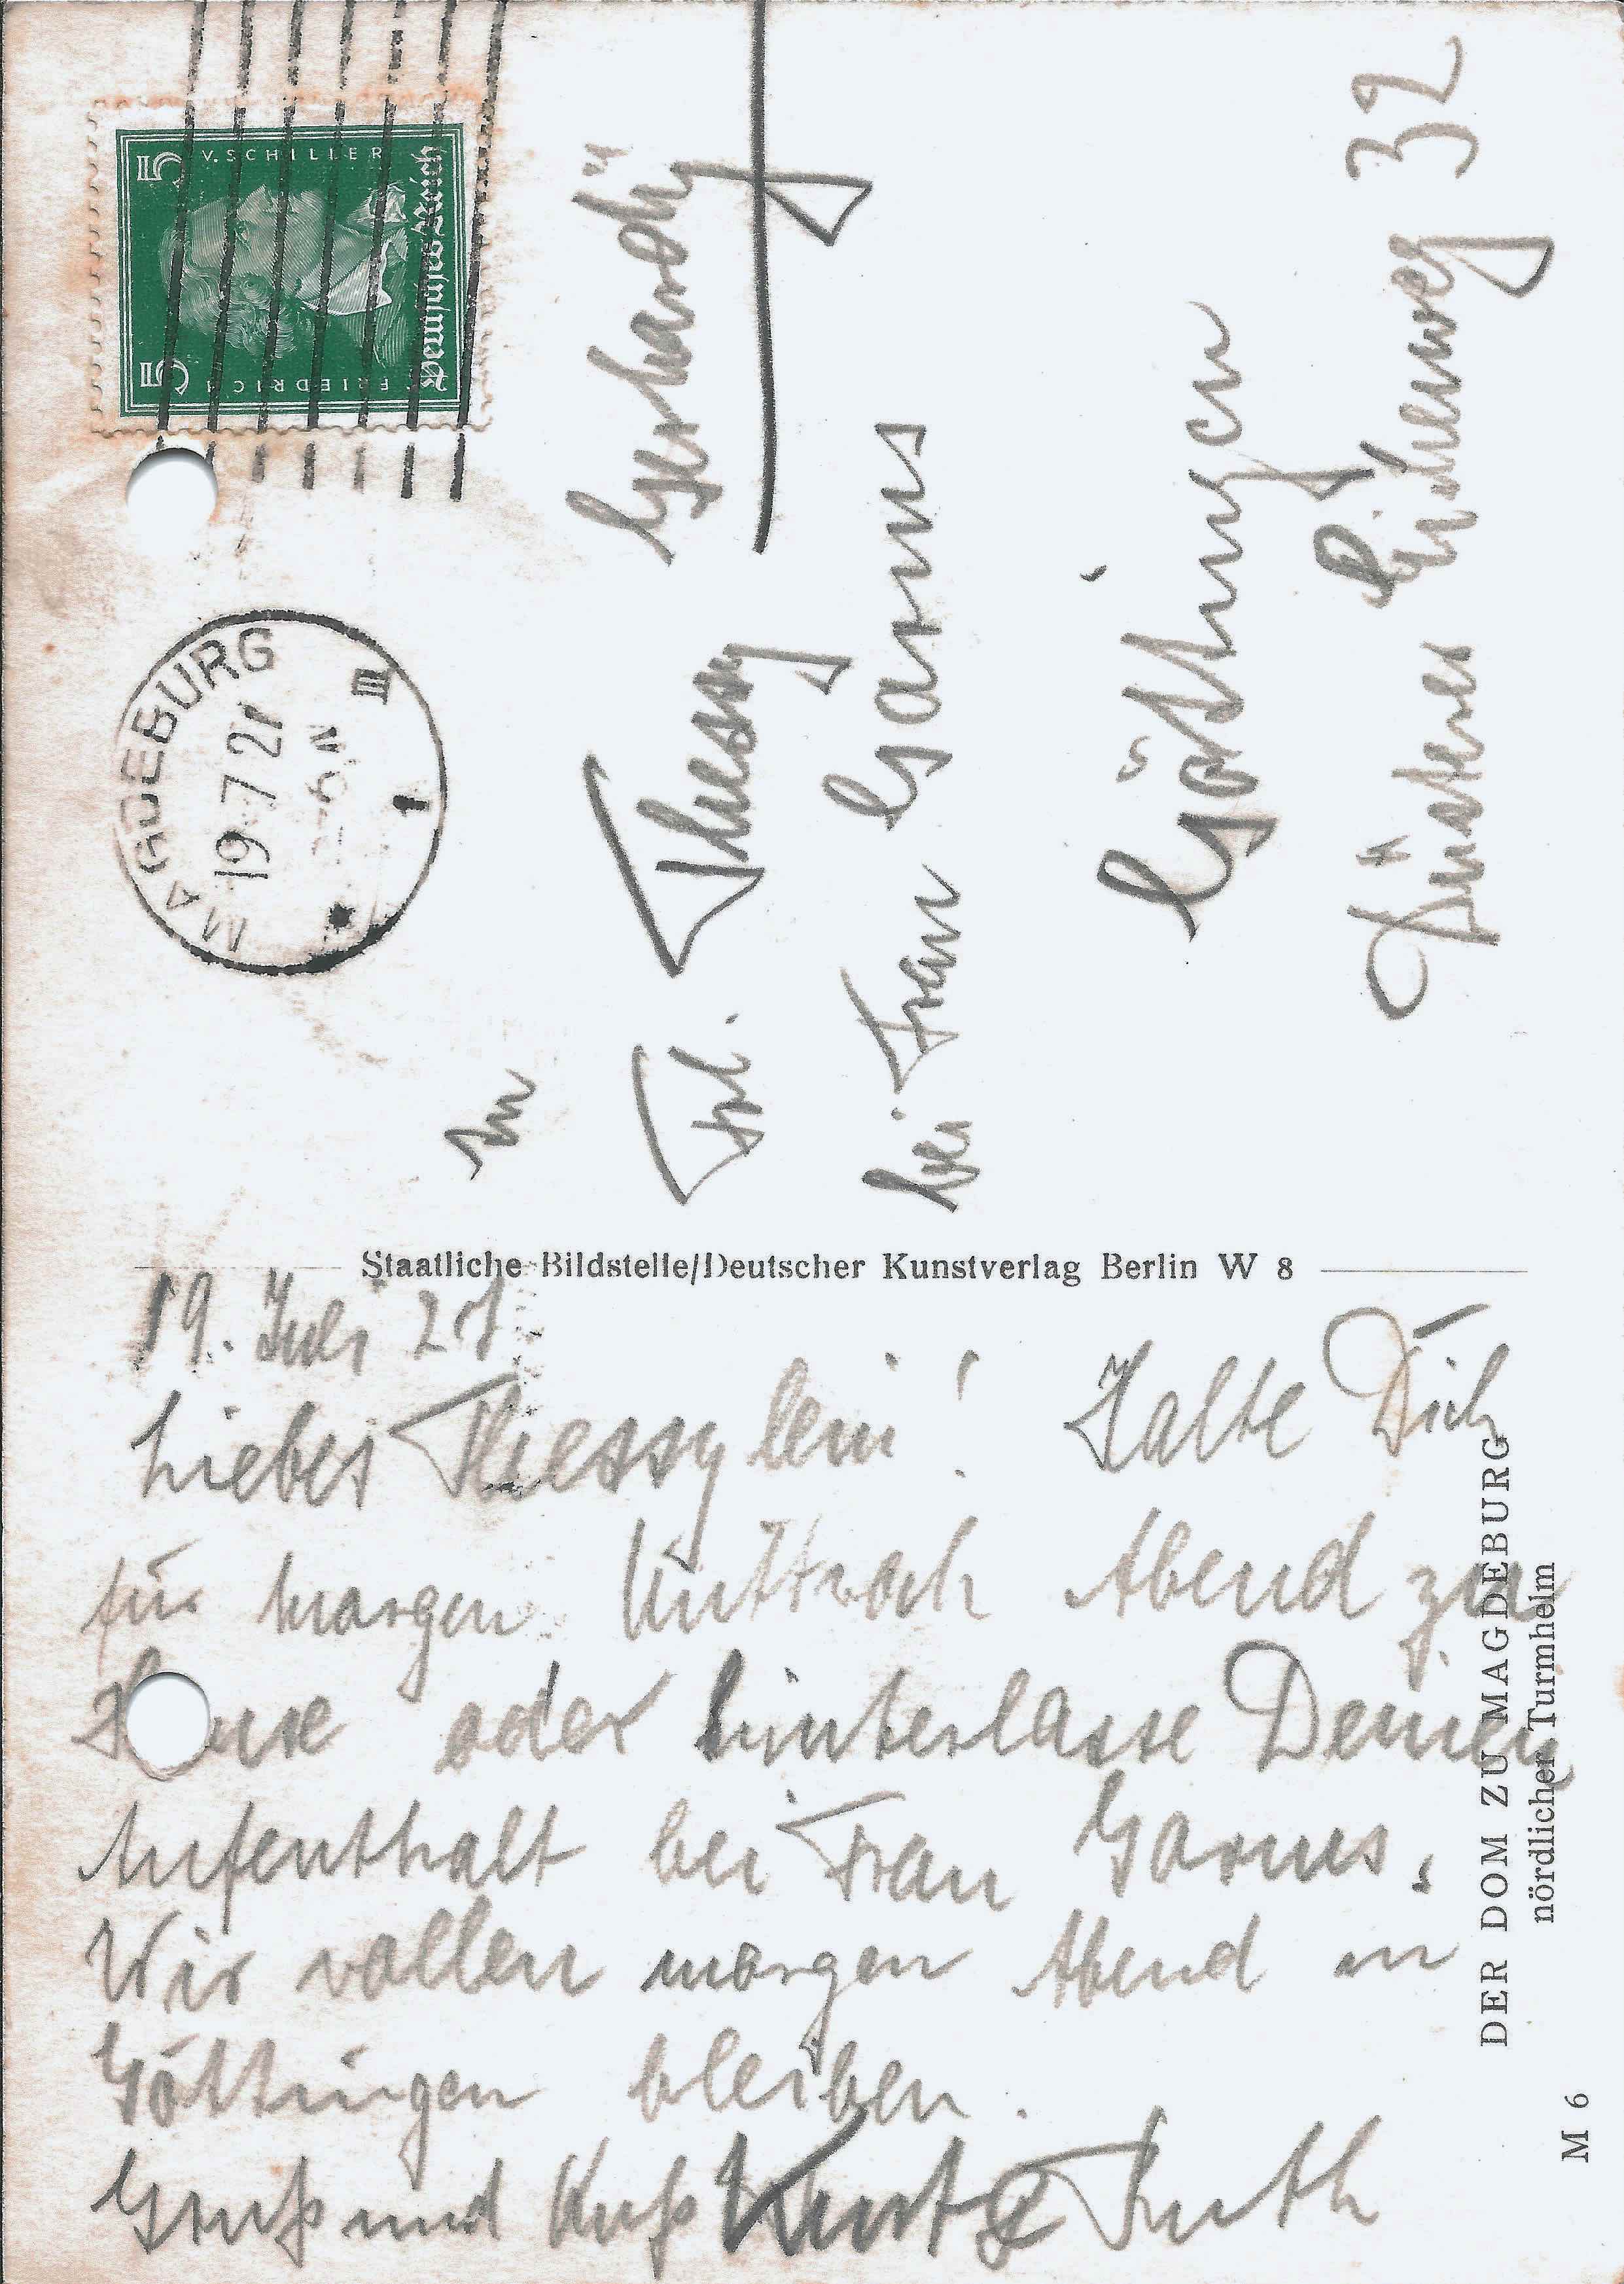 FRIEDRICH V. SCHILLER
5 5
Deutsches Reich
MAGDEBURG
19 7 27
5-6 N
* 1 III
An
Frl. Thessy Gerhardÿ
bei Frau Garms
Göttingen
Düsterer Eichenweg 32
Staatliche Bildstelle/Deutscher Kunstverlag Berlin W 8
19. Juli 27
Liebes Thessylein! Halte Dich
für morgen Mittwoch Abend zu
Hause oder hinterlasse Deinen
Aufenthalt bei Frau Garms.
Wir wollen morgen Abend in
Göttingen bleiben.
Gruß und Kuß Kurt & Ruth
DER DOM ZU MAGDEBURG
nördlicher Turmhelm
M 6